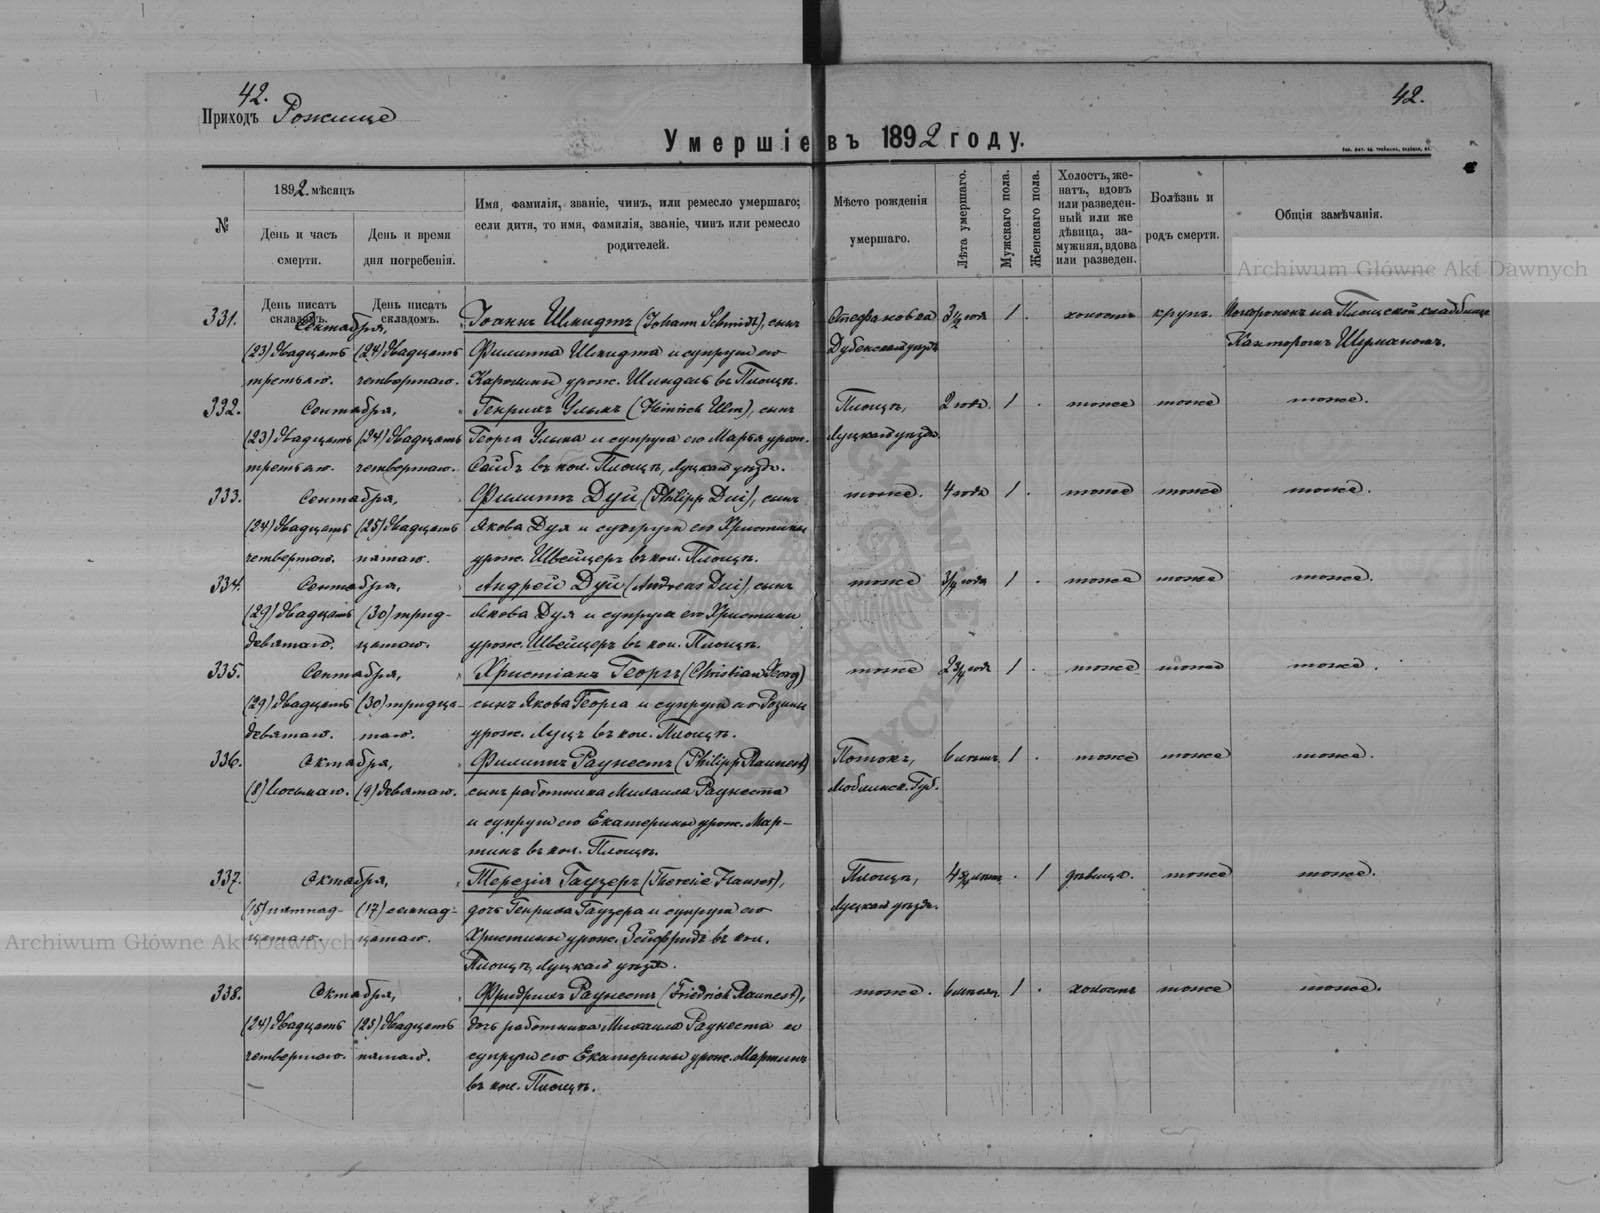 42.
42.
Приходъ Рожище
Умершіе въ 1892 году.
№
1892 мѣсяцъ
День и часъ
смерти.
День и время
дня погребенія.
Имя, фамилія, званіе, чинъ, или ремесло умершаго;
если дитя, то имя, фамилія, званіе, чинъ или ремесло
родителей.
Мѣсто рожденія
умершаго.
Лѣта умершаго.
Мужскаго пола.
Женскаго пола.
Холостъ, же-
натъ, вдовъ
или разведен-
ный или же
дѣвица, за-
мужняя, вдова
или разведен.
Болѣзнь и
родъ смерти.
Общія замѣчанія.
День писать
складомъ.
День писать
складомъ.
331. Сентября, Іоаннъ Шмидтъ (Johann Schmidt), сынъ Стефановка 3½ года 1 . холостъ крупъ. Похороненъ на Площской кладбище
(23) двадцать (24) двадцать Филиппа Шмидта и супруги его Дубенскаго уѣзда Канторомъ Шурманомъ.
третьяго. четвертаго. Каролины урож. Шиндель въ Площѣ.
332. Сентября, Генрихъ Ульмъ (Heinrich Ulm), сынъ Площъ, 2 года 1 . тоже тоже тоже.
(23) двадцать (24) двадцать Георга Ульма и супруги его Марья урож. Луцкаго уѣзда.
третьяго. четвертаго. въ кол. Площѣ, Луцкаго уѣзда.
333. Сентября, Филиппъ Дуй (Philipp Dui), сынъ тоже. 4 года 1 . тоже тоже тоже.
(24) двадцать (25) двадцать Якова Дуя и супруги его Христины
четвертаго. пятаго. урож. Швейцеръ въ кол. Площѣ.
334. Сентября, Андрей Дуй (Andreas Dui), сынъ тоже ¾ года 1 . тоже тоже тоже.
(29) двадцать (30) трид- Якова Дуя и супруги его Христины
девятаго. цатаго. урож. Швейцеръ въ кол. Площѣ.
335. Сентября, Христіанъ Георгъ (Christian Georg) тоже 2¾ года 1 . тоже тоже тоже.
(29) двадцать (30) тридца- сынъ Якова Георга и супруги его Розины
девятаго. таго. урож. Луцъ въ кол. Площѣ.
336. Октября, Филиппъ Раунестъ (Philipp Raunest) Потокъ, 6 лѣтъ 1 . тоже тоже тоже.
(8) восьмаго. (9) девятаго. сынъ работника Михаила Раунеста Люблинск. Губ.
и супруги его Екатерины урож. Мар-
тинъ въ кол. Площѣ.
337. Октября, Терезія Гаузеръ (Theresie Hauser), Площъ, 4¾ лѣтъ . 1 дѣвица. тоже тоже.
(15) пятнад- (17) семнад- дочь Генриха Гаузера и супруги его Луцкаго уѣзда.
цатаго. цатаго. Христины урож. Зейфридъ въ кол.
Площѣ, Луцкаго уѣзда.
338. Октября, Фридрихъ Раунестъ (Friedrich Raunest), тоже. 6 мѣсяц. 1 . холостъ тоже тоже.
(24) двадцать (25) двадцать дочь работника Михаила Раунеста и
четвертаго. пятаго. супруги его Екатерины урож. Мартинъ
въ кол. Площѣ.
Archiwum Główne Akt Dawnych
Archiwum Główne Akt Dawnych